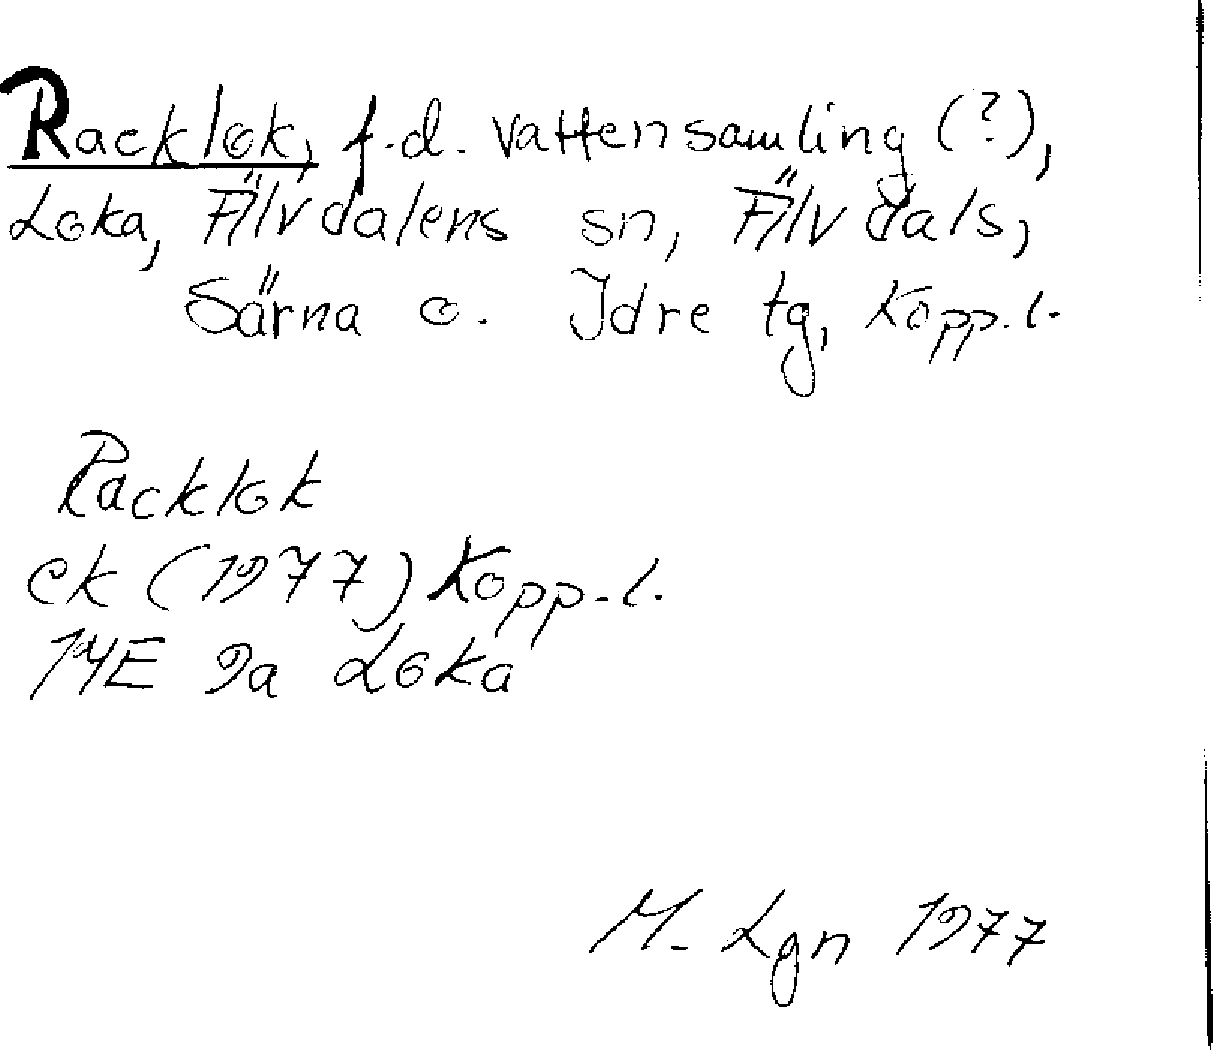 Racklok, f.d. vattensamling (?),
Loka, Älvdalens sn, Älvdals,
Särna o. Idre tg, Kopp.l.
Racklok
ek (1977) Kopp.l.
14E 9a Loka
M. Lgn 1977